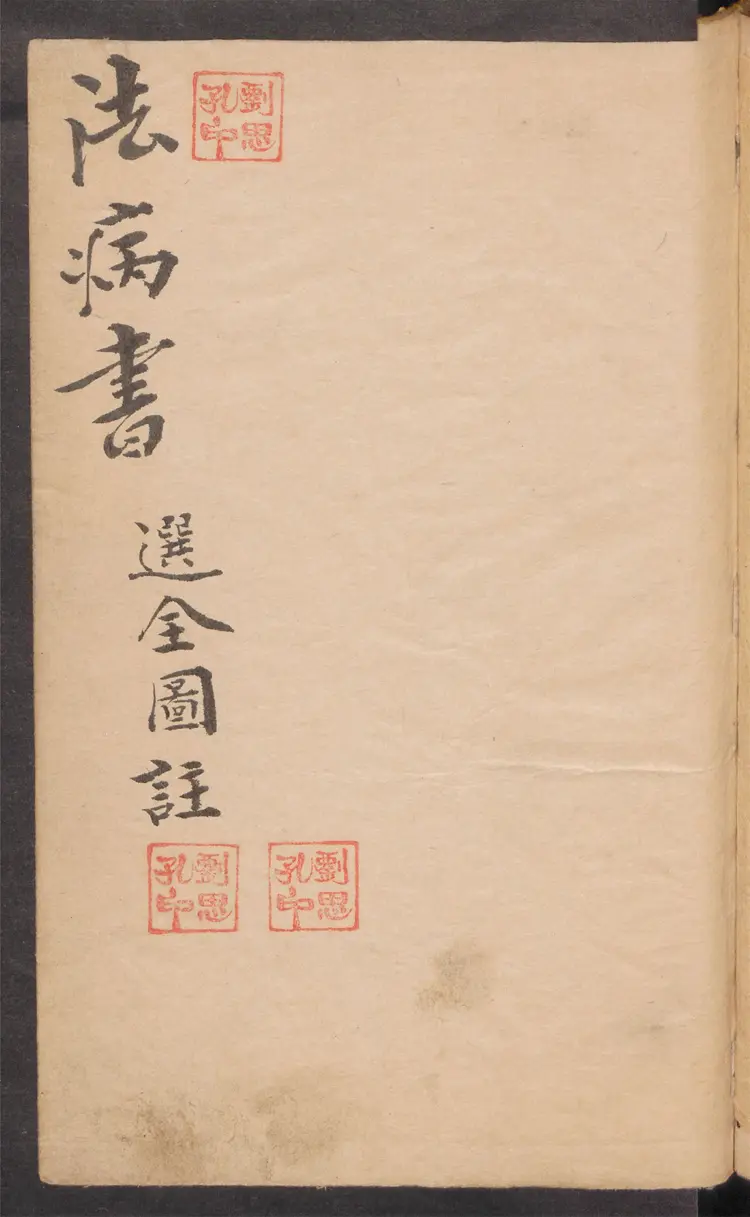 法病書
選全圖註
劉思
孔中
劉思
孔中
劉思
孔中